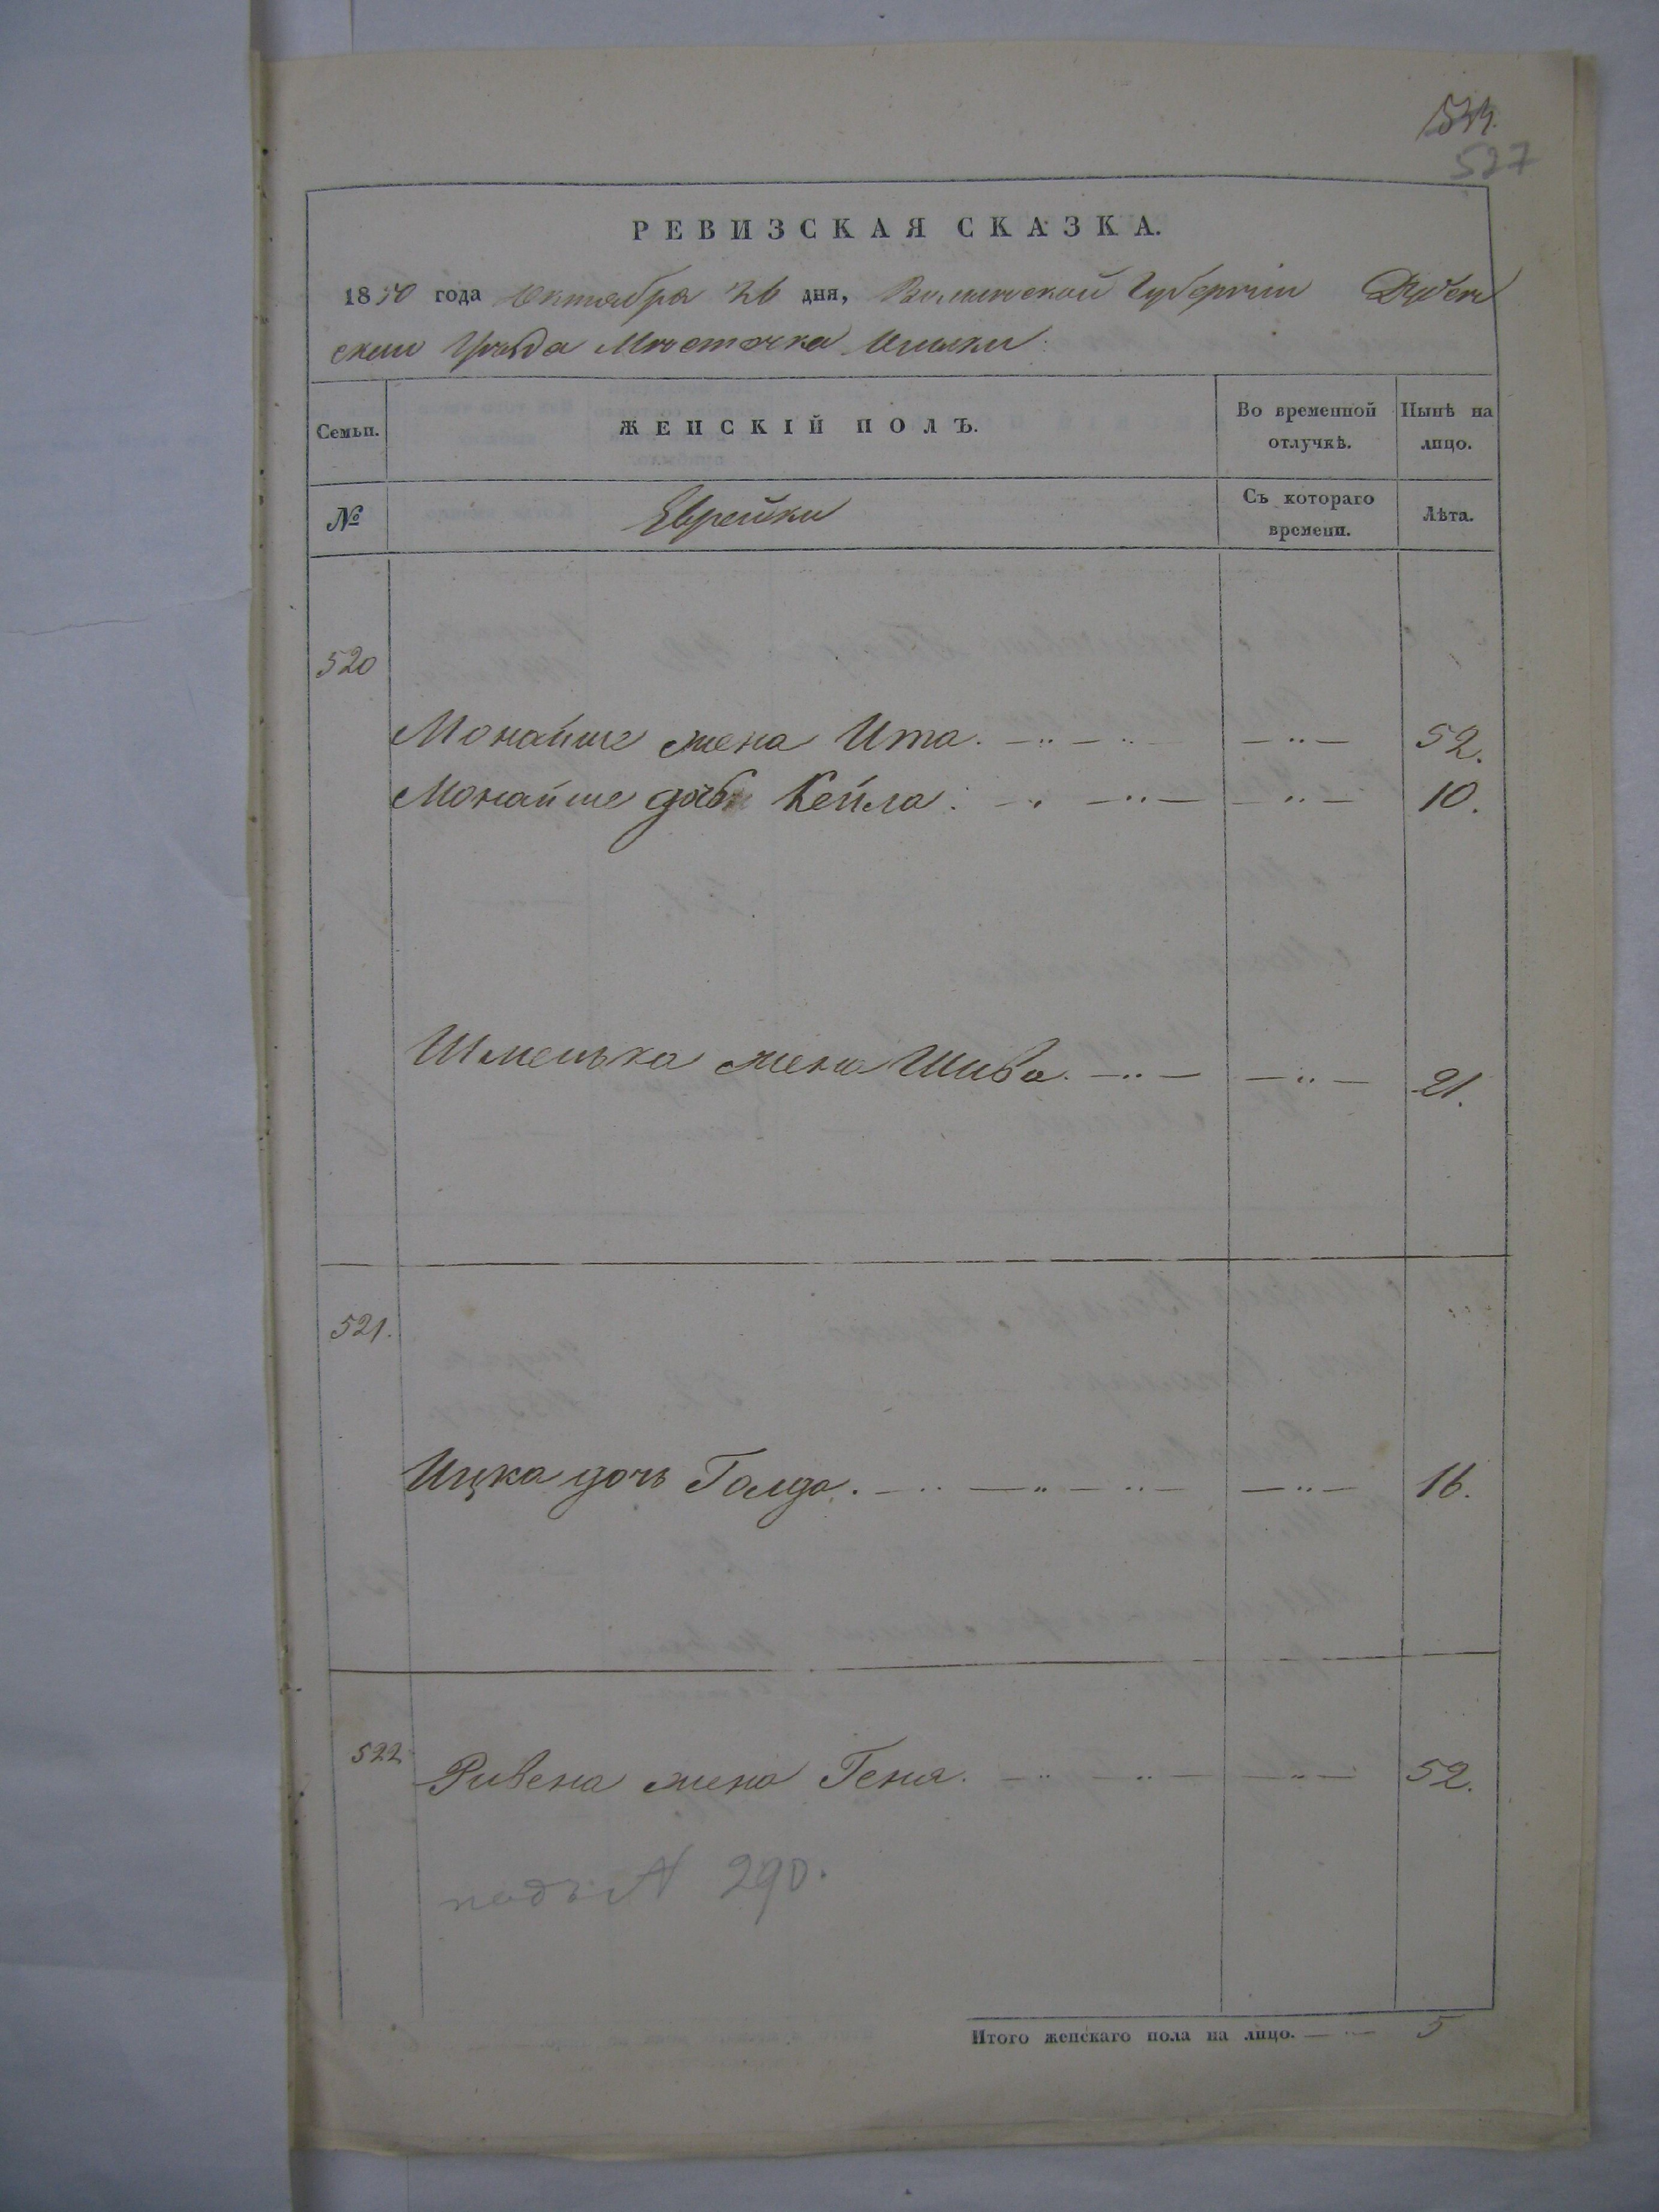 527
РЕВИЗСКАЯ СКАЗКА.
1850 года Октября 26 дня, Волынской Губернiи Дубен
скаго Уѣзда Мѣстечка
Семьи.
ЖЕНСКІЙ ПОЛЪ.
Во временной отлучкѣ.
Нынѣ на лицо.
№
Еврейки
Съ котораго времени.
Лѣта.
520
Монайше жена Ита. 52.
Монайше дочь Кейла. 10.
Шменька жена Шива. 21.
521.
Ицка дочь Голда. 16.
522 Ривена жена Геня. 52.
подъ N 290.
Итого женскаго пола на лицо. 5